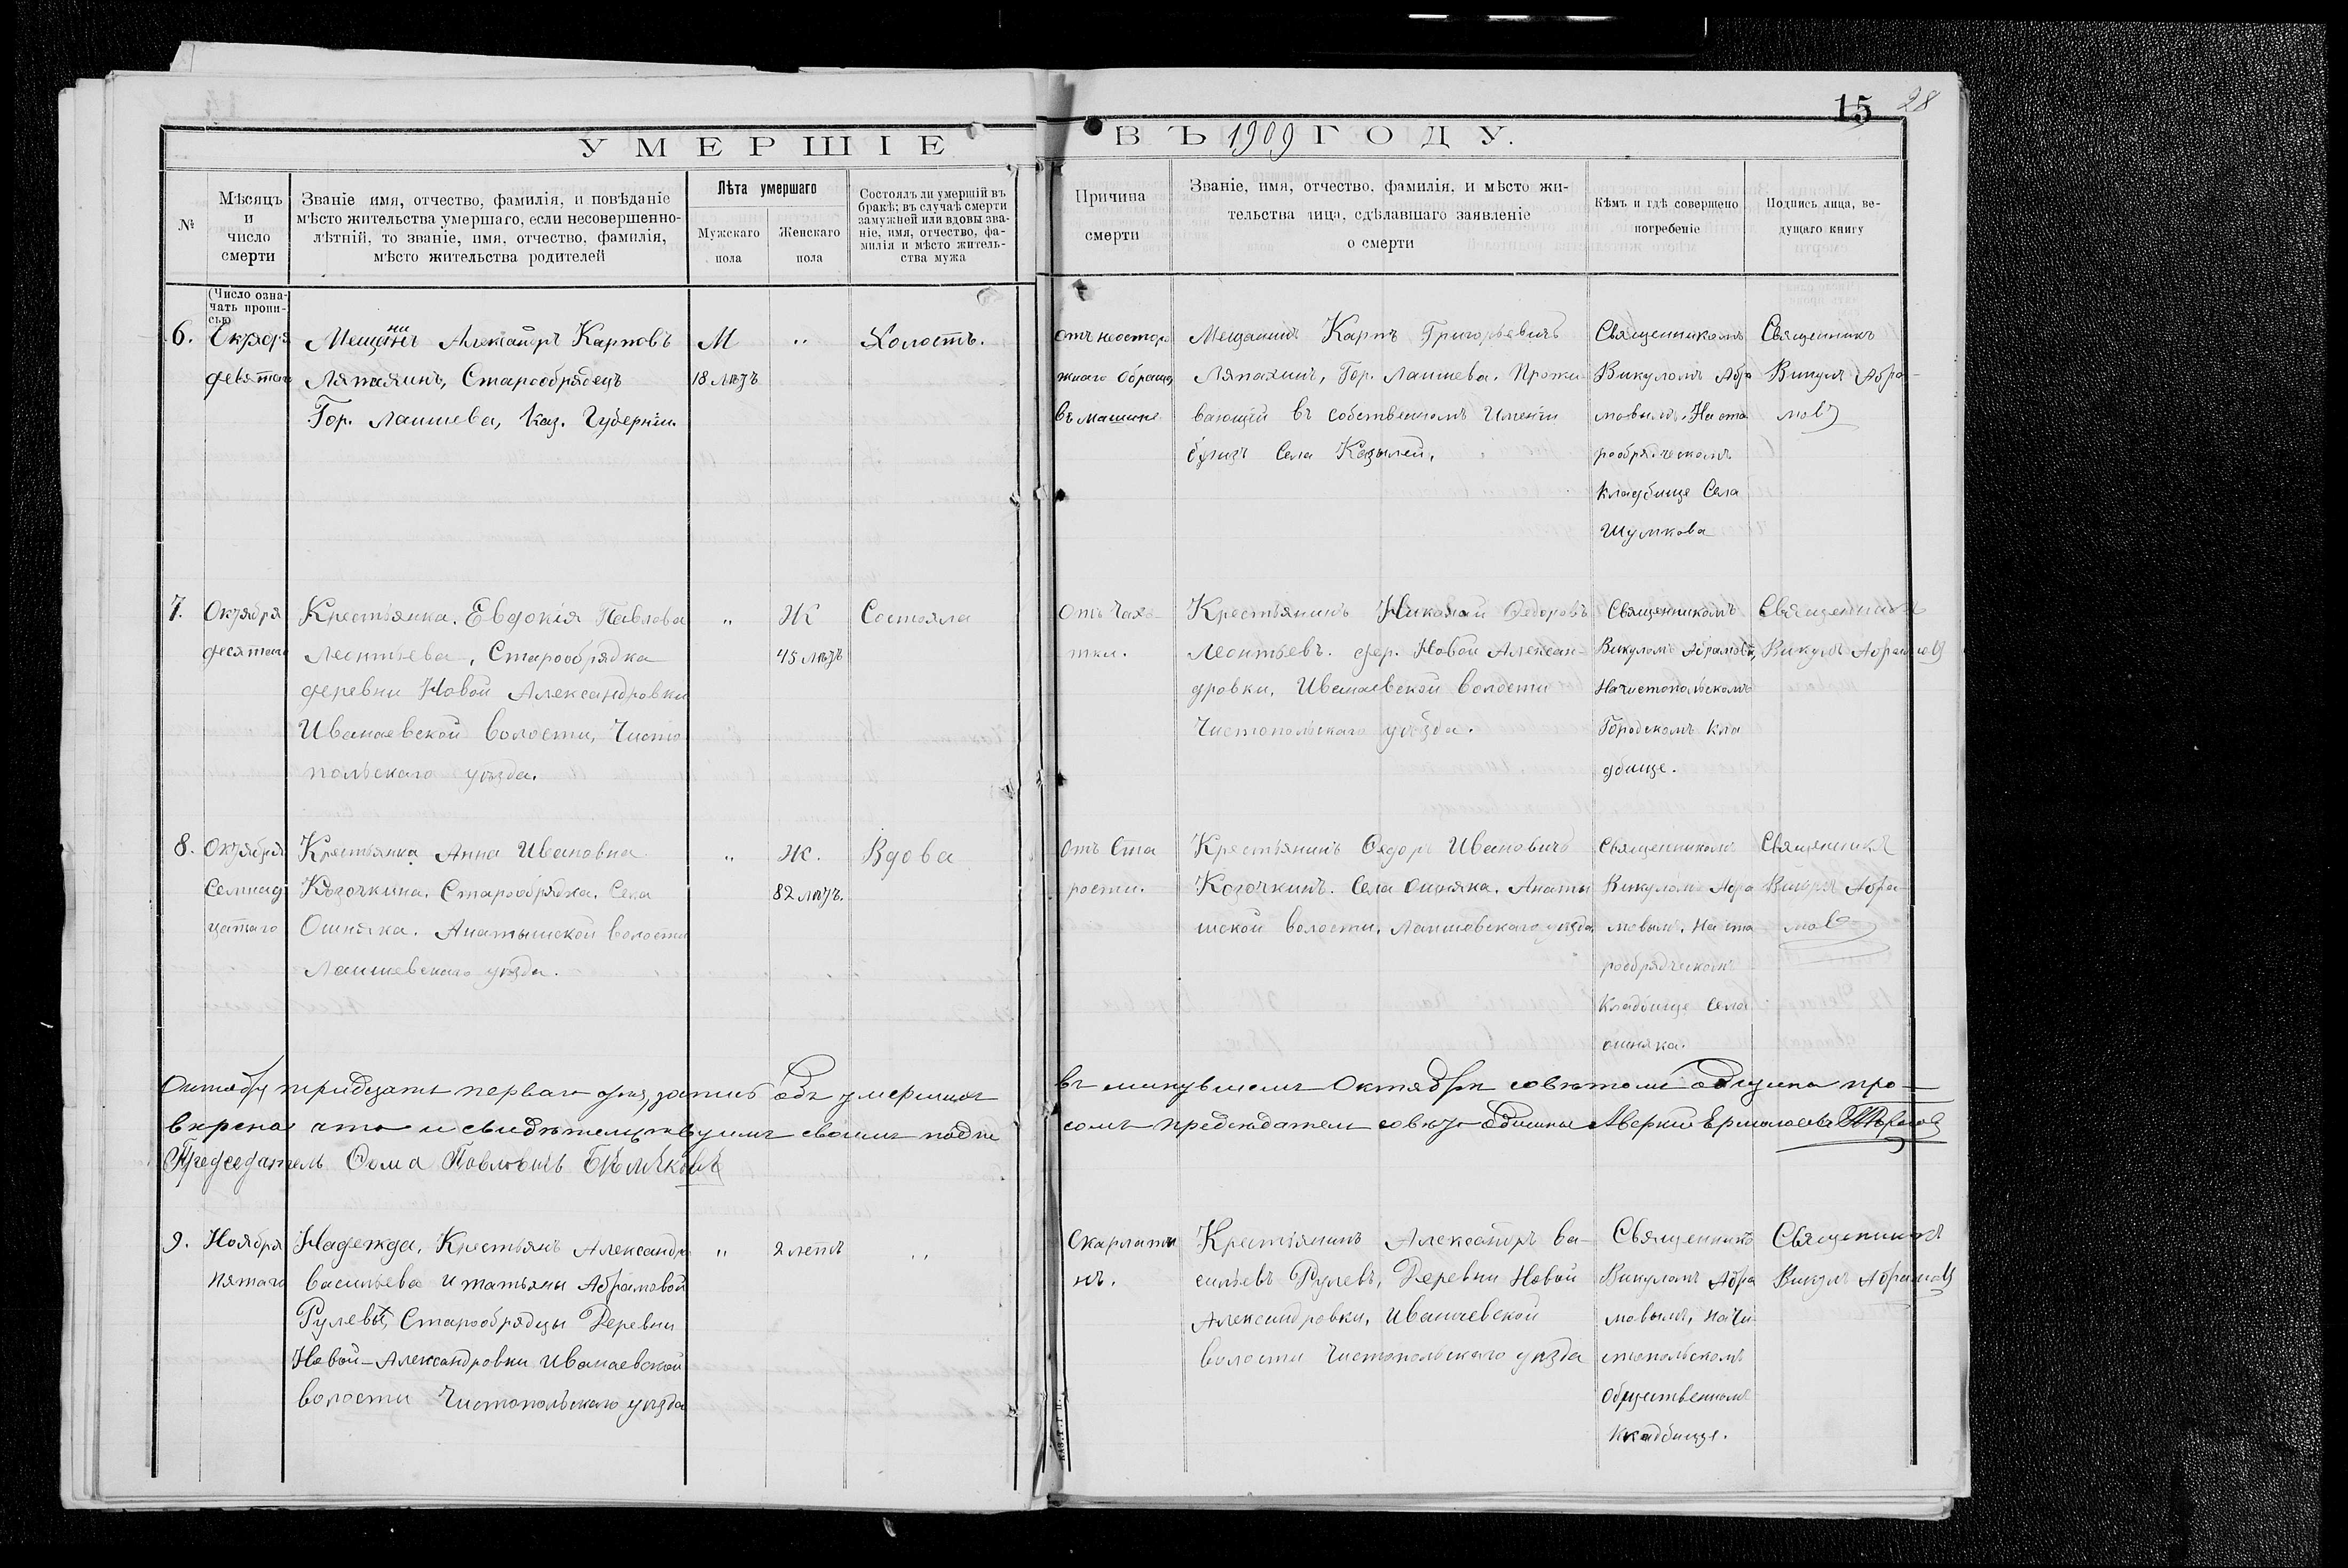 15 28
УМЕРШІЕ
ВЪ 1909 ГОДУ.
№
Мѣсяцъ
и
число
смерти
Званіе имя, отчество, фамилія, и повѣданіе
мѣсто жительства умершаго, если несовершенно-
лѣтній, то званіе, имя, отчество, фамилія,
мѣсто жительства родителей
Лѣта умершаго
Мужскаго
пола
Женскаго
пола
Состоялъ ли умершій въ
бракѣ; въ случаѣ смерти
замужней или вдовы зва-
ніе, имя, отчество, фа-
милія и мѣсто житель-
ства мужа
Причина
смерти
Званіе, имя, отчество, фамилія, и мѣсто жи-
тельства лица, сдѣлавшаго заявленіе
о смерти
Кѣмъ и гдѣ совершено
погребеніе
Подпись лица, ве-
дущаго книгу
(Число озна-
чать пропи-
сью
6.
Октября
девятаго
Мещанинъ Александръ Карповъ
Ляпахинъ, Старообрядецъ
Гор. Лаишева, Каз. Губерніи.
М
18 лѣтъ
"
Холостъ.
отъ неосторо
жнаго Обращ
въ машине
Мещанинъ Карпъ Григорьевичъ
Ляпахинъ, Гор. Лаишева. Прожи
вающій въ собственномъ Именіи
близъ Села Козылей.
Священникомъ
Викуломъ Абра
мовымъ. На ста
рообрядческомъ
кладбище Села
Шумкова
Священникъ
Викулъ Абра-
мовъ
7.
Октября
десятаго
Крестьянка. Евдокія Павлова
Леонтьева, Старообрядка
деревни Новой Александровки
Иванаевской волости, Чисто
польскаго уѣзда.
"
Ж
45 лѣтъ
Состояла
Отъ Чахо-
тки.
Крестьянинъ Николай Ѳедоровъ
Леонтьевъ. дер. Новой Алексан-
дровки, Иванаевской волости
Чистопольскаго уѣзда.
Священникомъ
Викуломъ Абрамовъ,
На чистопольскомъ
Городскомъ Кла
дбище.
Священникъ
Викулъ Абрамовъ
8.
Октября
Семнад
цатаго
Крестьянка Анна Ивановна
Козочкина. Старообрядка. Села
Ошняка. Анатышской волости
Лаишевскаго уѣзда.
"
Ж.
82 лѣтъ.
Вдова
Отъ Ста
рости.
Крестьянинъ Ѳедоръ Ивановичъ
Козочкинъ. Села Ошняка. Анаты
шской волости. Лаишевскаго уѣзда.
Священникомъ
Викуломъ Абра
мовымъ. На ста
рообрядческомъ
Кладбище Села
ошняка.
Священникъ
Викулъ Абра-
мовъ
Октября тридцать перваго дня, запись объ умершихъ
въ минувшемъ Октябрѣ совѣтомъ общины про-
верена что и свидѣтельствуемъ своимъ подпи
сомъ председатель совѣта общины Аверкій Ермолаевъ
Председатель Ѳома Павловичъ
9.
Ноября
пятаго
Надежда, Крестьянъ Александра
Васильева и татьяны Абрамовой
Рулевы, Старообрядцы Деревни
Новой-Александровки Иванаевской
волости Чистопольскаго уѣзда
"
2 летъ
"
Скарлати
нъ.
Крестьянинъ Александръ Ва-
сильевъ Рулевъ, Деревни Новой
Александровки, Иванаевской
волости Чистопольскаго уѣзда
Священникъ
Викуломъ Абра
мовымъ, на Чи
стопольскомъ
общественномъ
Кладбище.
Священникъ
Викулъ Абрамовъ